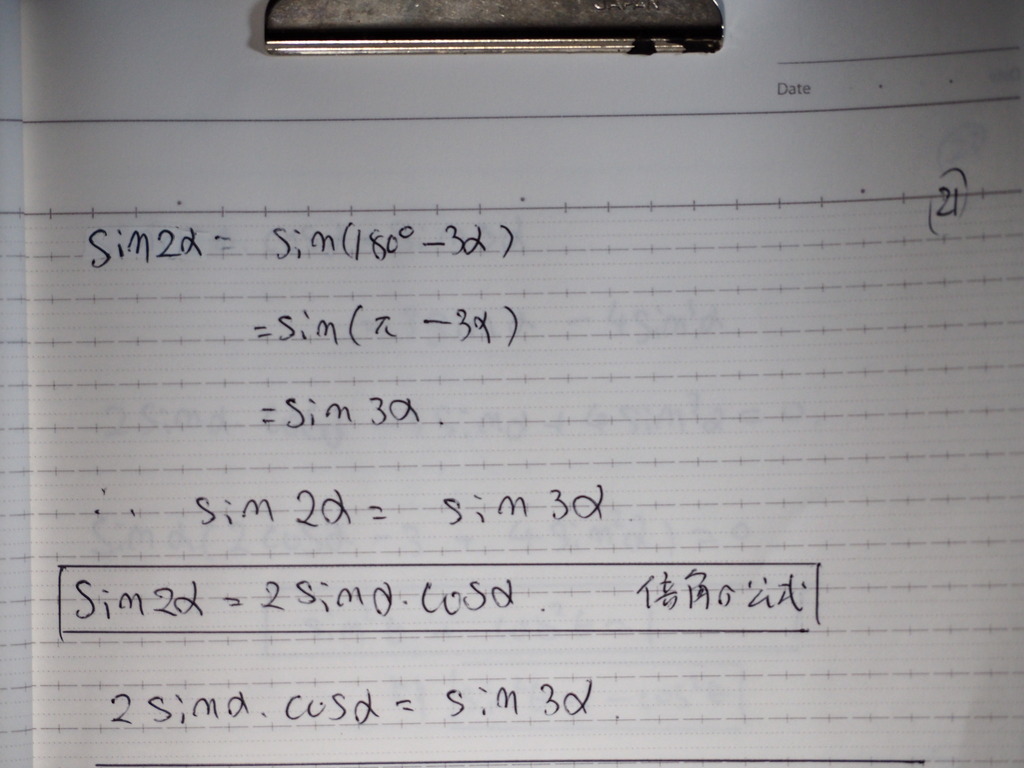 JAPAN
Date
(21)
sin2α = sin(180° - 3α)
= sin(π - 3α)
= sin 3α.
∴ sin 2α = sin 3α.
sin2α = 2 sinα・cosα. 倍角の公式
2 sinα・cosα = sin 3α.